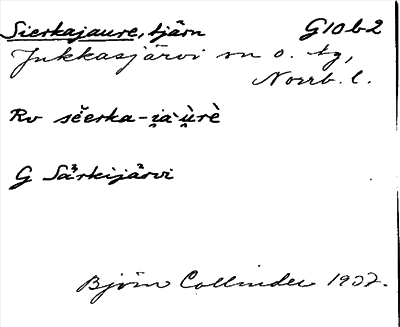 Sierkajaure, tjärn G10b2
Jukkasjärvi sn o. tg,
Norrb. l.
Rv sěerka-i̯a·ù̯rè
G Särkijärvi
Björn Collinder 1937.